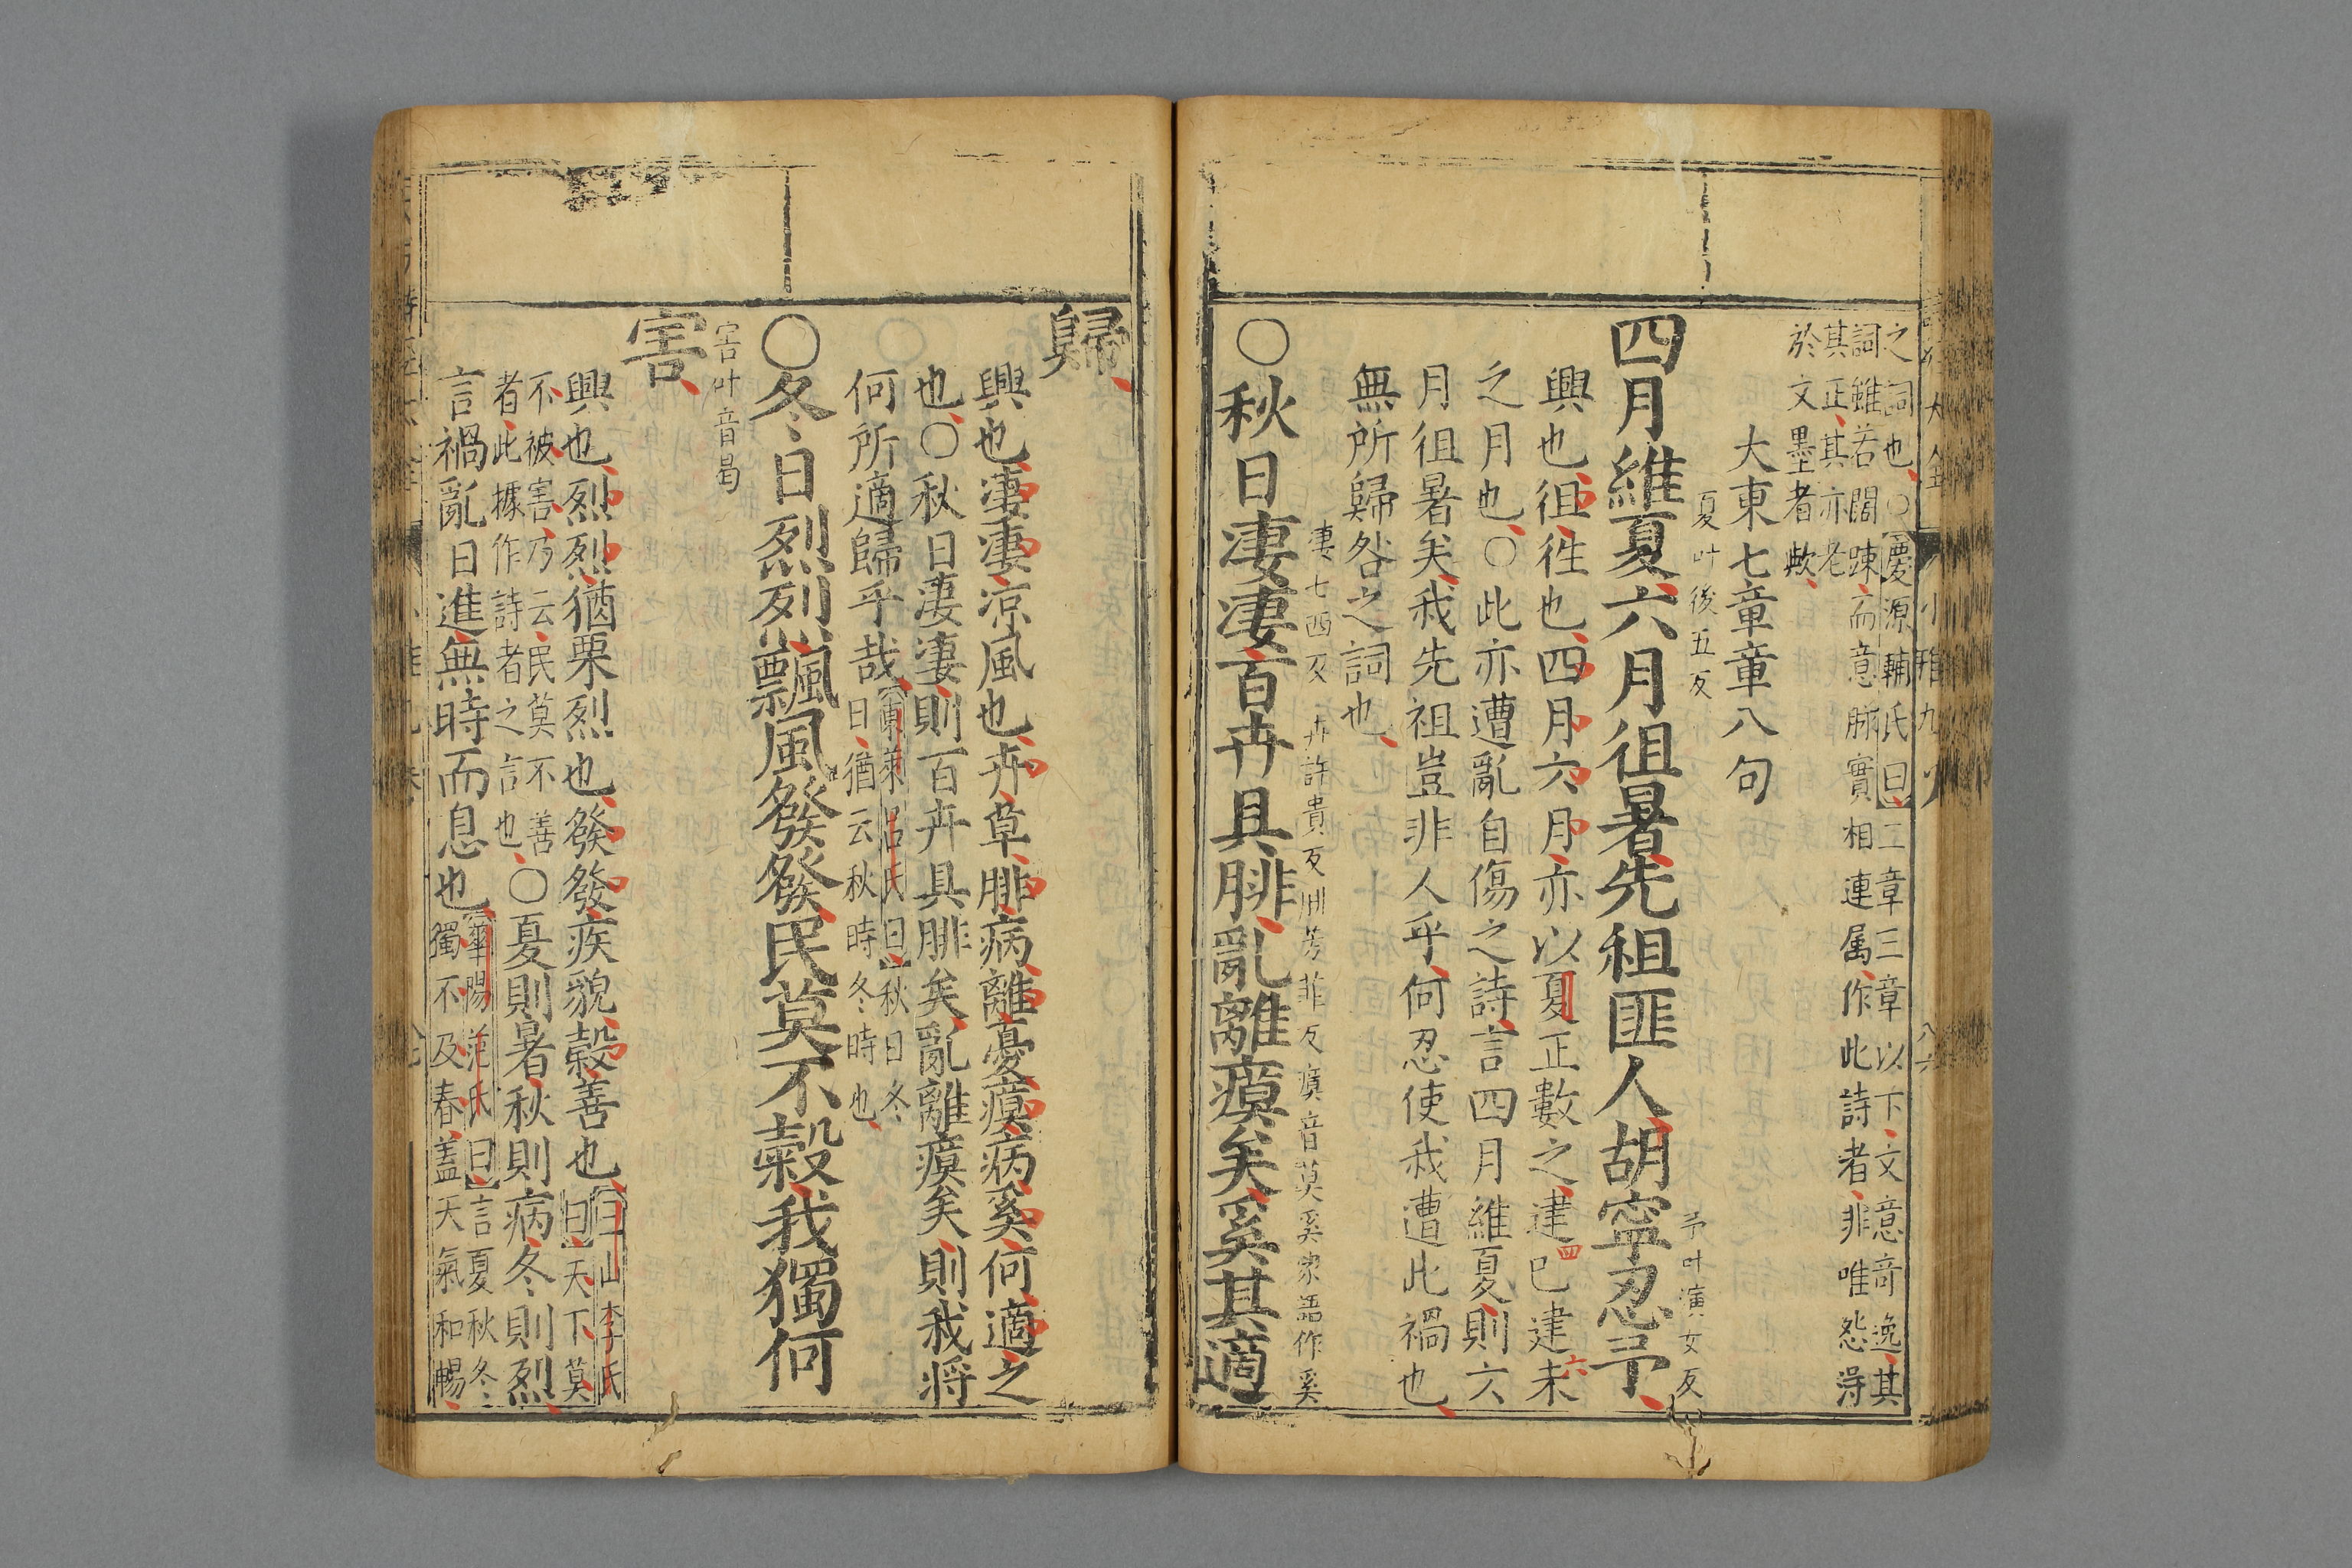 之詞也○慶源輔氏曰二章三章以下文意奇逸其
詞雖若闊踈而意脉實相連属作此詩者非唯怨得
其正其亦老
於文墨者歟
大東七章章八句
夏叶後五反
予叶演女反
四月維夏六月徂暑先祖匪人胡寧忍予
興也徂徃也四月六月亦以夏正數之建巳建未
四
六
之月也○此亦遭亂自傷之詩言四月維夏則六
月徂暑矣我先祖豈非人乎何忍使我遭此禍也
無所歸咎之詞也
凄七西反 卉許貴反 腓芳菲反 瘼音莫 奚家語作奚
○秋日凄凄百卉具腓亂離瘼矣奚其適
歸
興也凄凄凉風也卉草腓病離憂瘼病奚何適之
也○秋日凄凄則百卉具腓矣亂離瘼矣則我将
何所適歸乎哉
東萊呂氏曰秋日冬
日猶云秋時冬時也
○冬日烈烈飄風發發民莫不穀我獨何
害叶音曷
害
興也烈烈猶栗烈也發發疾貌穀善也
三山李氏
曰天下莫
不被害乃云民莫不善
者此據作詩者之言也
○夏則暑秋則病冬則烈
言禍亂日進無時而息也
華陽范氏曰言夏秋冬
獨不及春盖天氣和暢